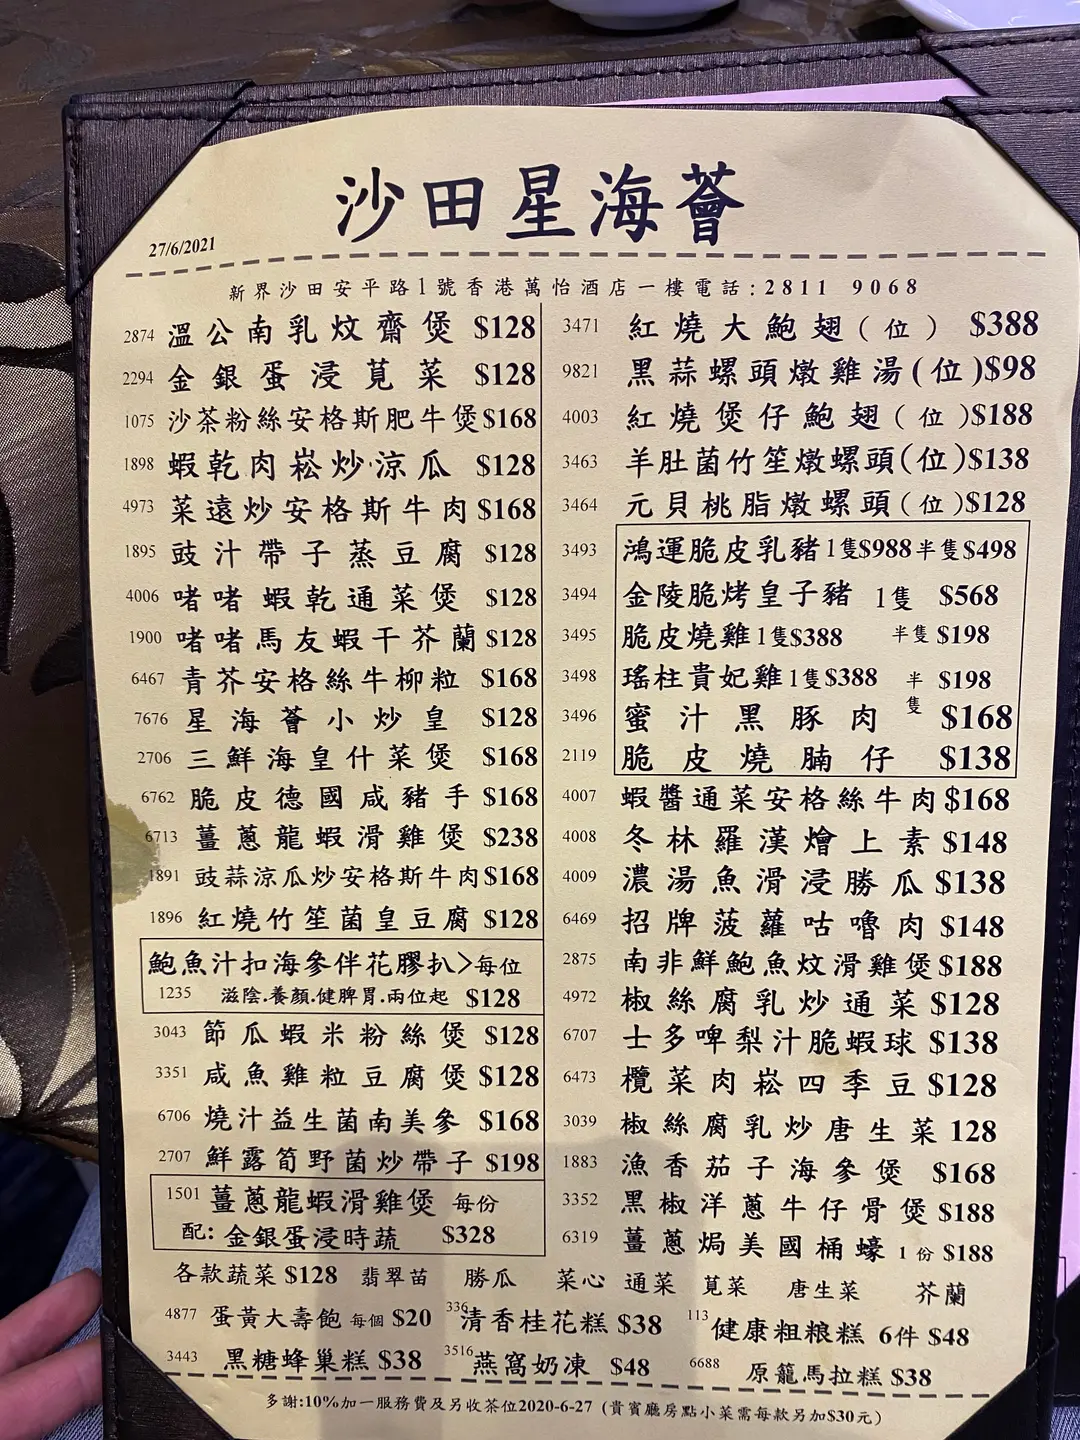 沙田星海薈
27/6/2021
新界沙田安平路1號香港萬怡酒店一樓電話:2811 9068
2874 溫公南乳炆齋煲 $128
2294 金銀蛋浸莧菜 $128
1075 沙茶粉絲安格斯肥牛煲$168
1898 蝦乾肉崧炒涼瓜 $128
4973 菜遠炒安格斯牛肉 $168
1895 豉汁帶子蒸豆腐 $128
4006 啫啫蝦乾通菜煲 $128
1900 啫啫馬友蝦干芥蘭 $128
6467 青芥安格絲牛柳粒 $168
7676 星海薈小炒皇 $128
2706 三鮮海皇什菜煲 $168
6762 脆皮德國咸豬手 $168
6713 薑蔥龍蝦滑雞煲 $238
1891 豉蒜涼瓜炒安格斯牛肉$168
1896 紅燒竹笙菌皇豆腐 $128
鮑魚汁扣海參伴花膠扒>每位
1235 滋陰.養顏.健脾胃.兩位起 $128
3043 節瓜蝦米粉絲煲 $128
3351 咸魚雞粒豆腐煲 $128
6706 燒汁益生菌南美參 $168
2707 鮮露筍野菌炒帶子 $198
1501 薑蔥龍蝦滑雞煲 每份
配: 金銀蛋浸時蔬 $328
3471 紅燒大鮑翅(位) $388
9821 黑蒜螺頭燉雞湯(位)$98
4003 紅燒煲仔鮑翅(位)$188
3463 羊肚菌竹笙燉螺頭(位)$138
3464 元貝桃脂燉螺頭(位)$128
3493 鴻運脆皮乳豬1隻$988半隻$498
3494 金陵脆烤皇子豬 1隻 $568
3495 脆皮燒雞1隻$388 半隻 $198
3498 瑤柱貴妃雞1隻$388 半隻 $198
3496 蜜汁黑豚肉 $168
2119 脆皮燒腩仔 $138
4007 蝦醬通菜安格絲牛肉$168
4008 冬林羅漢燴上素 $148
4009 濃湯魚滑浸勝瓜 $138
6469 招牌菠蘿咕嚕肉 $148
2875 南非鮮鮑魚炆滑雞煲$188
4972 椒絲腐乳炒通菜 $128
6707 士多啤梨汁脆蝦球 $138
6473 欖菜肉崧四季豆 $128
3039 椒絲腐乳炒唐生菜 128
1883 漁香茄子海參煲 $168
3352 黑椒洋蔥牛仔骨煲 $188
6319 薑蔥焗美國桶蠔 1份 $188
各款蔬菜 $128 翡翠苗 勝瓜 菜心 通菜 莧菜 唐生菜 芥蘭
4877 蛋黃大壽飽 每個 $20 336 清香桂花糕 $38 113 健康粗粮糕 6件 $48
3443 黑糖蜂巢糕 $38 3516 燕窩奶凍 $48 6688 原籠馬拉糕 $38
多謝:10%加一服務費及另收茶位2020-6-27 (貴賓廳房點小菜需每款另加$30元)